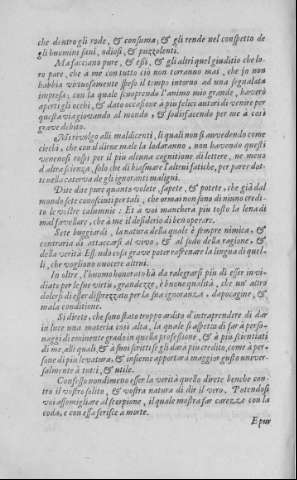 che dentro gli rode, & consuma; & gli rende nel conspetto de
gli huomini sani, odiosi, & puzzolenti.
Ma facciano pure, & essi, & gli altri quel giuditio che lo-
ro pare, che à me con tutto ciò non torranno mai, che io non
habbia virtuosamente speso il tempo intorno ad una segnalata
impresa, con la quale scoprendo l'animo mio grande, haverò
aperti gli occhi, & dato occasione à piu felici autori di venire per
questa via giovando al mondo, & sodisfacendo per me à così
grave debito.
Mi rivolgo alli maldicenti, li quali non si avvedendo come
ciechi, che con il dirne male la lodaranno, non havendo questi
venenosi rospi per il piu alcuna cognitione di lettere, ne meno
d'altre scienza, solo che di biasmare l'altrui fatiche, per parer dot-
ti nella caterva de gli ignoranti maligni.
Dite dite pure quanto volete, sapete, & potete, che già dal
mondo sete conosciuti per tali, che ormai non sono di niuno credi-
to le vostre calumnie: Et à voi mancherà piu tosto la lena di
mal favellare, che à me il desiderio di ben operare.
Sete buggiardi, la natura della quale è sempre nimica, &
contraria di attaccarsi al vivo, & al sodo della ragione, &
della verità. Essendo cosa grave poter raffrenare la lingua di quel-
li, che vogliono nuocere altrui.
In oltre, l'huomo honorato hà da ralegrarsi piu di esser invi-
diato per sue virtù, grandezze, è buone qualità, che un' altro
dolersi di esser disprezzato per la sua ignoranza, dapocagine, &
mala conditione.
Si direte, che sono stato troppo ardito d'intraprendere di dar
in luce una materia così alta, la quale si aspetta di far à perso-
naggi di eminente grado in quella professione, & à piu scientiati
di me, alli quali, & à suoi scritti se gli darà piu credito, come à per-
sone di piu levatura, & insieme apportarà maggior gusto univer-
salmente à tutti, & utile.
Confesso nondimeno esser la verità quello direte benche con-
tro il vostro solito, & vostra natura di dir il vero. Potendosi
voi assomigliare al scorpione, il quale mostra far carezza con la
coda, e con essa ferisce à morte.
E pur